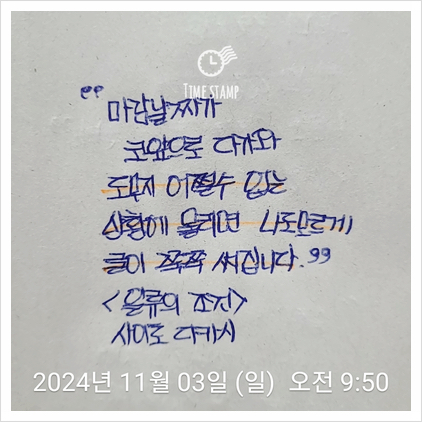 TIMESTAMP
"마감날짜가
코앞으로 다가와
도무지 어쩔수 없는
상황에 몰리면 나도모르게
글이 쭉쭉 써집니다."
<일류의 조건>
사이토 다카시
2024년 11월 03일 (일) 오전 9:50